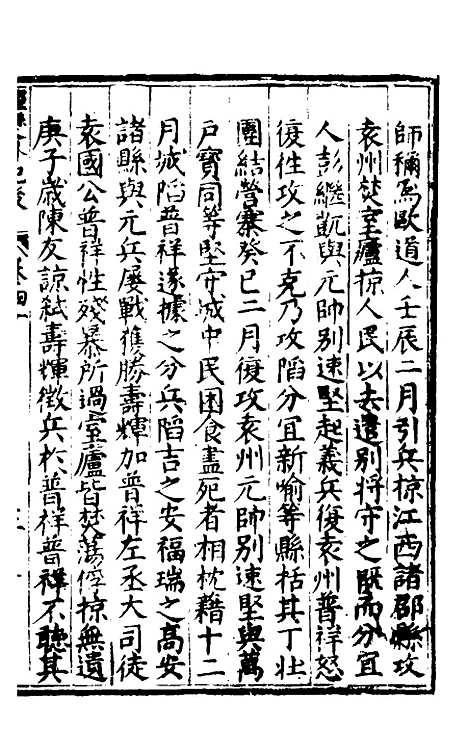 師稱為歐道人壬辰二月引兵掠江西諸郡縣攻
袁州焚室廬掠人民以去遣別將守之既而分宜
人彭繼凱與元帥別速堅起義兵復袁州普祥怒
復往攻之不克乃攻陷分宜新喻等縣括其丁壯
團結營寨癸巳二月復攻袁州元帥別速堅與萬
戶寶同等堅守城中民困食盡死者相枕藉十二
月城陷普祥遂據之分兵陷吉之安福瑞之高安
諸縣與元兵屢戰獲勝壽輝加普祥左丞大司徒
袁國公普祥性殘暴所過室廬皆焚蕩俘掠無遺
庚子歲陳友諒弒壽輝徵兵於普祥普祥不聽其